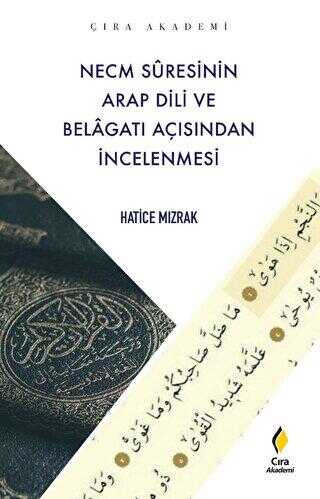 ÇIRA AKADEMİ
NECM SÛRESİNİN
ARAP DİLİ VE
BELÂGATI AÇISINDAN
İNCELENMESİ
HATİCE MIZRAK
النَّجْمِ إِذَا هَوٰىۙ
مَا ضَلَّ صَاحِبُكُمْ وَمَا غَوٰىۚ
يُوحٰىۙ
عَلَّمَهُ شَد۪يدُ الْقُوٰىۙ
ذُو
Çıra
Akademi